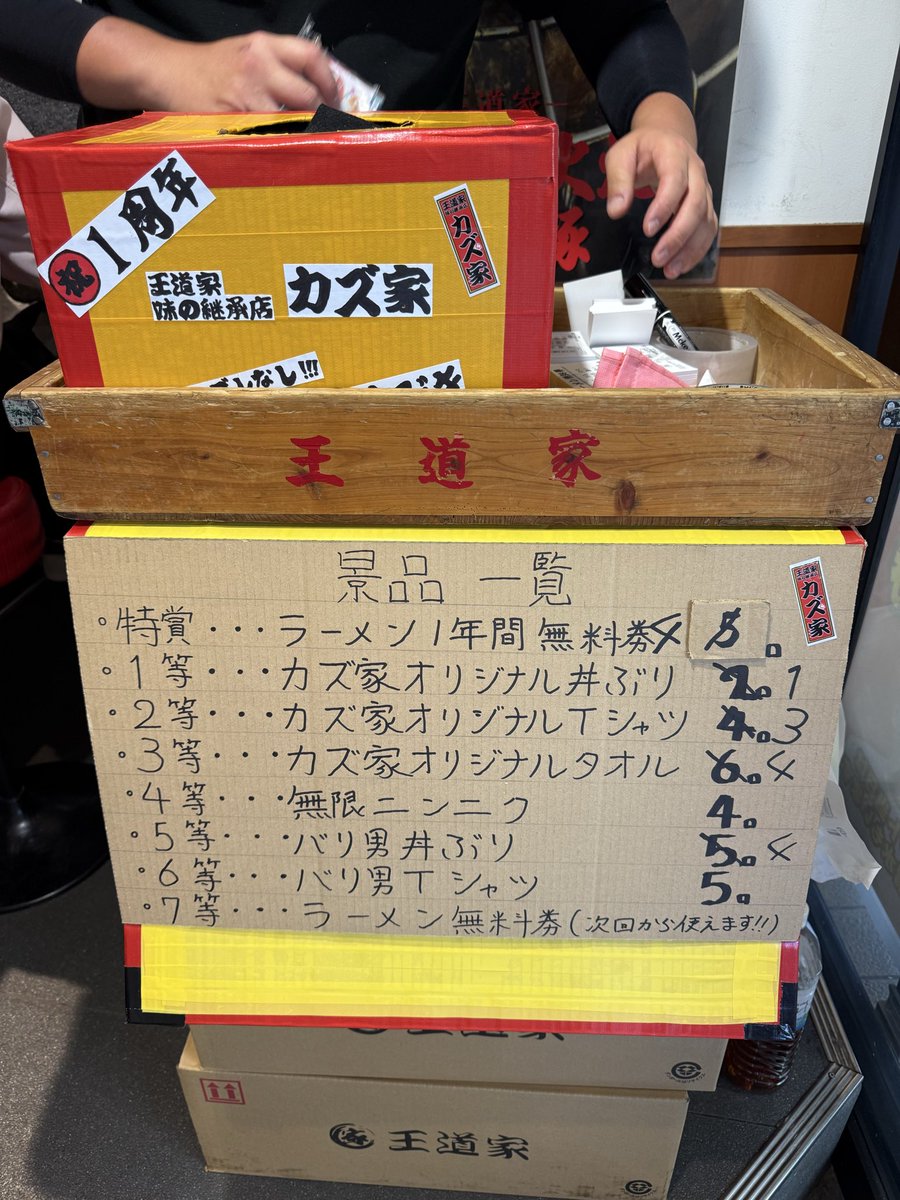 ㊗1周年
王道家
味の継承店
カズ家
王道家
カズ家
なし!!!
王道家
景品一覧
カズ家
。特賞・・・ラーメン1年間無料券
。1等・・・カズ家オリジナル丼ぶり 2。1
。2等・・・カズ家オリジナルTシャツ 4。3
。3等・・・カズ家オリジナルタオル 6。4
。4等・・・無限ニンニク 4。
。5等・・・バリ男丼ぶり 5。4
。6等・・・バリ男Tシャツ 5。
。7等・・・ラーメン無料券(次回から使えます!!)
王道家